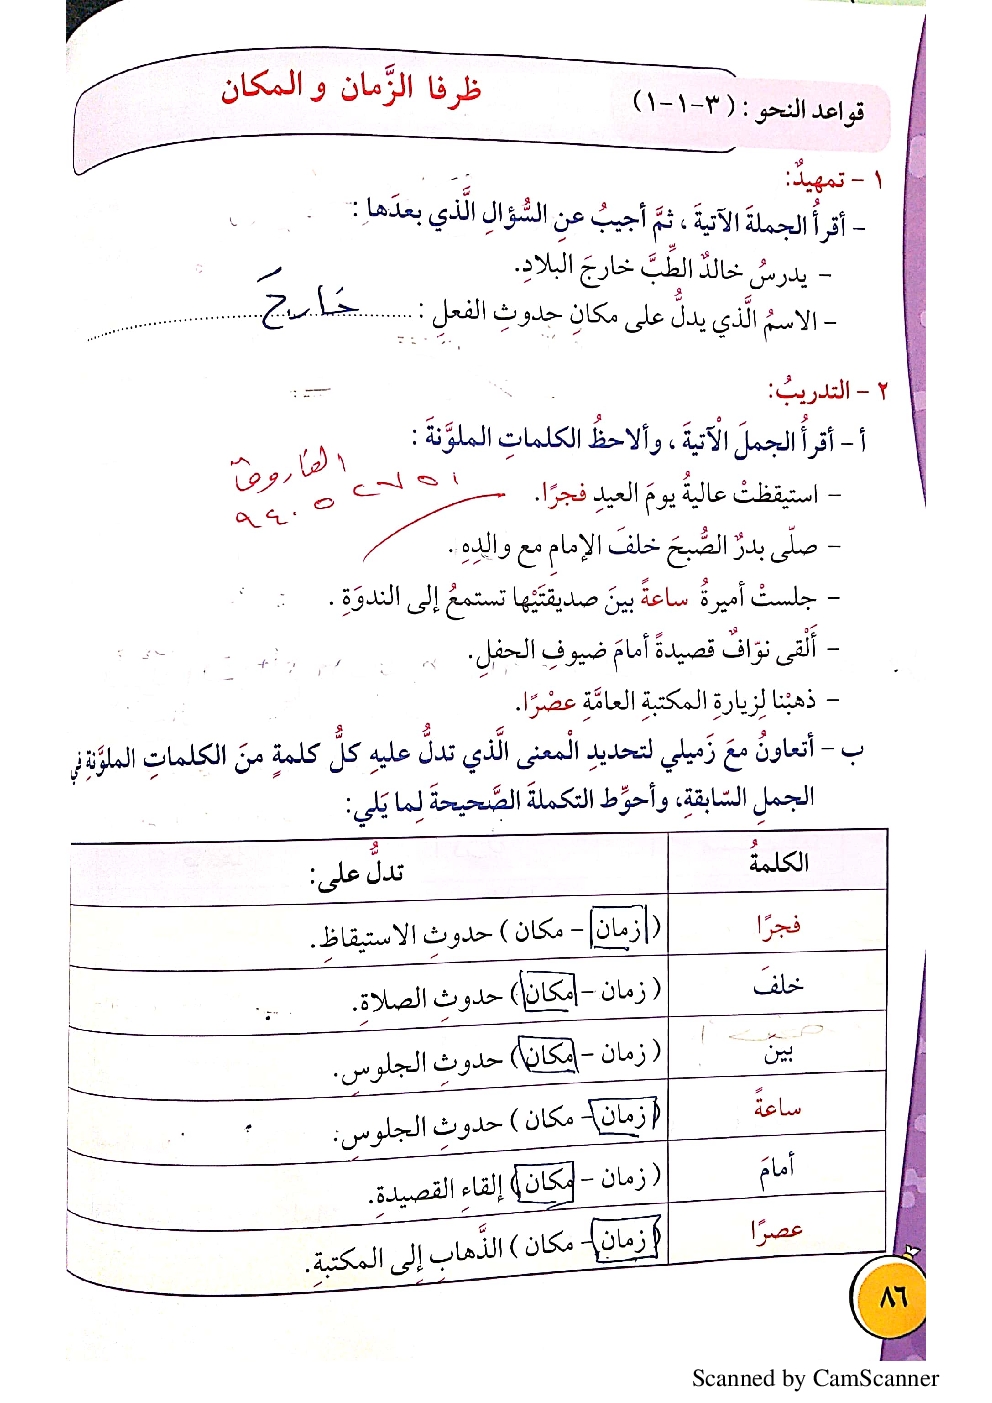 قواعد النحو : (٣-١-١) ظرفا الزَّمان و المكان
١ - تمهيدٌ:
- أقرأُ الجملةَ الآتيةَ ، ثمَّ أجيبُ عنِ السُّؤالِ الَّذي بعدَها :
- يدرسُ خالدٌ الطِّبَّ خارجَ البلادِ.
- الاسمُ الَّذي يدلُّ على مكانِ حدوثِ الفعلِ : خارجَ
٢ - التدريبُ:
أ - أقرأُ الجملَ الْآتيةَ ، وألاحظُ الكلماتِ الملوَّنةَ :
الفاروق
- استيقظتْ عاليةُ يومَ العيدِ فجرًا.
- صلّى بدرٌ الصُّبحَ خلفَ الإمامِ مع والدِهِ .
- جلستْ أميرةُ ساعةً بينَ صديقتَيْها تستمعُ إلى الندوَةِ .
- أَلْقى نوّافٌ قصيدةً أمامَ ضيوفِ الحفلِ.
- ذهبْنا لِزيارةِ المكتبةِ العامَّةِ عصْرًا.
ب - أتعاونُ معَ زَميلي لتحديدِ الْمعنى الَّذي تدلُّ عليهِ كلُّ كلمةٍ منَ الكلماتِ الملوَّنةِ في
الجملِ السّابقةِ، وأحوِّط التكملةَ الصَّحيحةَ لِما يَلي:
الكلمةُ تدلُّ على:
فجرًا (زمان - مكان ) حدوثِ الاستيقاظِ.
خلفَ ( زمان - مكان) حدوثِ الصلاةِ.
بينَ ( زمان - مكان) حدوثِ الجلوسِ.
ساعةً (زمان - مكان ) حدوثِ الجلوسِ.
أمامَ ( زمان - مكان) إلقاءِ القصيدةِ.
عصرًا (زمان - مكان ) الذَّهابِ إلى المكتبةِ.
٨٦
Scanned by CamScanner